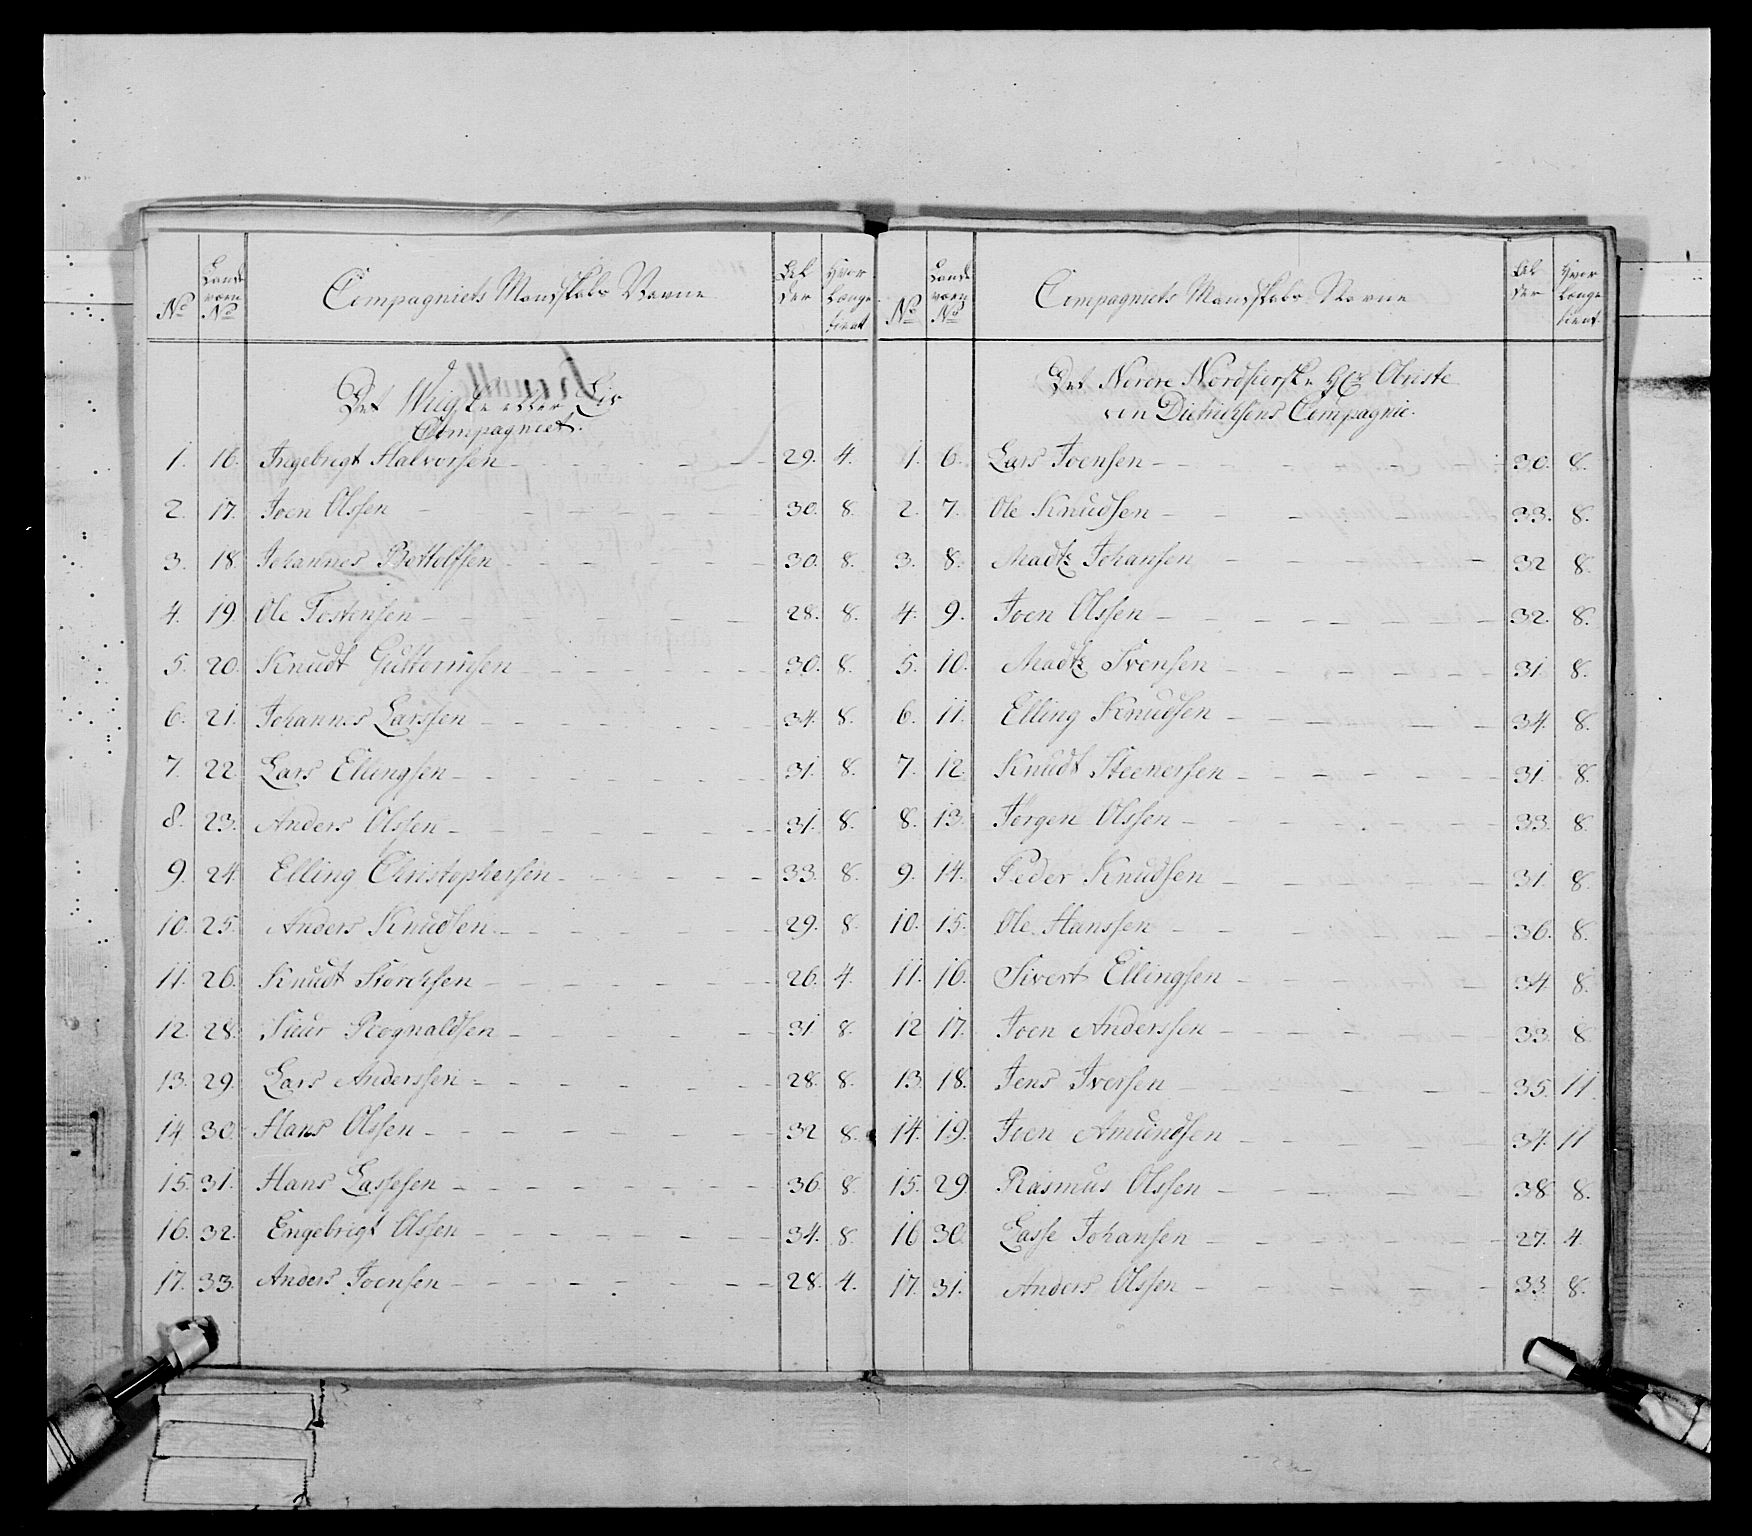 No Lands værn No Compagniets Mandskabs Navne Al der Hvor længe tient
Det Wiigske eller Liv
Compagniet.
1. 16. Ingebrigt Halvorsen 29. 4.
2. 17. Joen Olssen 30. 8.
3. 18. Johannes Bottelfsen 30. 8.
4. 19. Ole Tostensen 28. 8.
5. 20. Knudt Guttormsen 30. 8.
6. 21. Johannes Larssen 34. 8.
7. 22. Lars Ellingsen 31. 8.
8. 23. Anders Olssen 31. 8.
9. 24. Elling Christophersen 33. 8.
10. 25. Anders Knudsen 29. 8.
11. 26. Knudt Storchsen 26. 4.
12. 28. Siur Rognaldsen 31 8.
13. 29. Lars Anderssen 28. 8.
14 30. Hans Olssen 32 8.
15. 31. Hans Lassesen 36. 8.
16. 32. Engebrigt Olssen 34. 8.
17. 33. Anders Joensen 28. 4.
No Lands værn No Compagniets Mandskabs Navne Al der Hvor længe tient.
Det Nordre Nordfiorske Hr Obriste
von Dietrichsens Compagnie.
1. 6. Lars Joensen 30. 8.
2. 7. Ole Knudsen 33. 8.
3. 8. Madtz Johansen 32 8.
4. 9. Joen Olssen 32. 8.
5. 10. Madtz Svensen 31. 8.
6. 11. Elling Knudsen 34. 8.
7. 12. Knudt Steenersen 31. 8.
8. 13. Jørgen Olssen 33. 8.
9. 14. Peder Knudsen 31. 8.
10. 15. Ole Hanssen 36. 8.
11. 16. Sivert Ellingsen 34 8.
12 17. Joen Anderssen 33. 8.
13. 18. Jens Iversen 35. 11.
14. 19. Joen Amundsen 34. 11
15. 29. Rasmus Olssen 38 8.
16 30. Lasse Johansen 27. 4.
17. 31. Anders Olssen 33. 8.